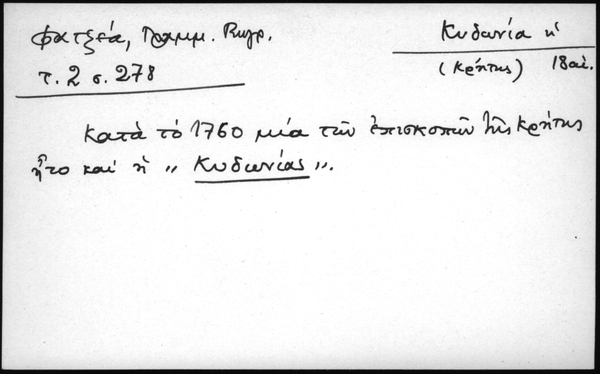 Φατζέα, Γραμμ. Πηγρ.
τ. 2 σ. 278
Κυδωνία ἡ
(Κρήτης) 18 αἰ.
Κατὰ τὸ 1760 μία τῶν ἐπισκοπῶν τῆς Κρήτης
ἦτο καὶ ἡ " Κυδωνίας ".